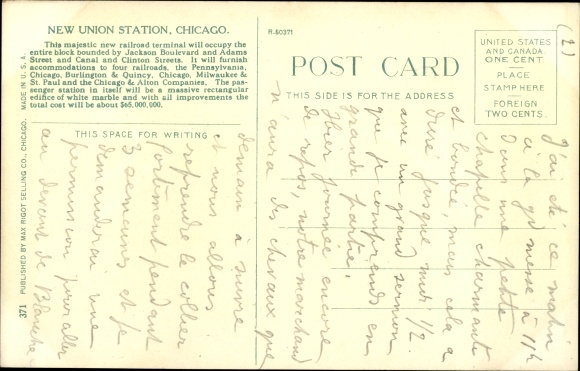 NEW UNION STATION, CHICAGO.
This majestic new railroad terminal will occupy the
entire block bounded by Jackson Boulevard and Adams
Street and Canal and Clinton Streets. It will furnish
accommodations to four railroads, the Pennsylvania,
Chicago, Burlington & Quincy, Chicago, Milwaukee &
St. Paul and the Chicago & Alton Companies. The pas-
senger station in itself will be a massive rectangular
edifice of white marble and with all improvements the
total cost will be about $65,000,000.
THIS SPACE FOR WRITING
371 PUBLISHED BY MAX RIGOT SELLING CO., CHICAGO. MADE IN U. S. A.
R-50371
POST CARD
THIS SIDE IS FOR THE ADDRESS
UNITED STATES
AND CANADA
ONE CENT
PLACE
STAMP HERE
FOREIGN
TWO CENTS.
(2)
J'ai été ce matin
à la gd messe à 11h
dans une petite
chapelle charmante
et bondée, mais cela a
duré jusque midi 1/2
avec un grand sermon
que je comprends en
grande partie.
Hier journée encore
de repos, notre marchand
n'aura des chevaux que
demain à suivre
et nous allons
reprendre le collier
fortement pendant
3 semaines et je
demanderai une
permission pour aller
au devant de Blanche